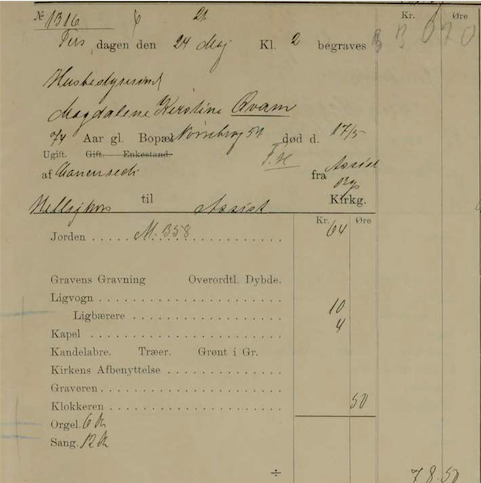 № 1316
Kr. Øre
Tirsdagen den 24 Maj Kl. 2 begraves
Husbestyrerinde
Magdalene Kirstine Qvam
74 Aar gl. Bopæl 51 død d. 17/5
Ugift. Gift. Enkestand.
af fra Assist
til Assist Kirkg.
Kr. Øre
Jorden . . . . . M. 358 64
Gravens Gravning Overordtl. Dybde.
Ligvogn . . . . . . . . . . . . . . . .
Ligbærere . . . . . . . . . . . . 10
Kapel . . . . . . . . . . . . . . . . . 4
Kandelabre. Træer. Grønt i Gr.
Kirkens Afbenyttelse . . . . . . . . . .
Graveren . . . . . . . . . . . . . . .
Klokkeren . . . . . . . . . . . . . . 50
Orgel. 6
Sang. 12
÷ 78.50